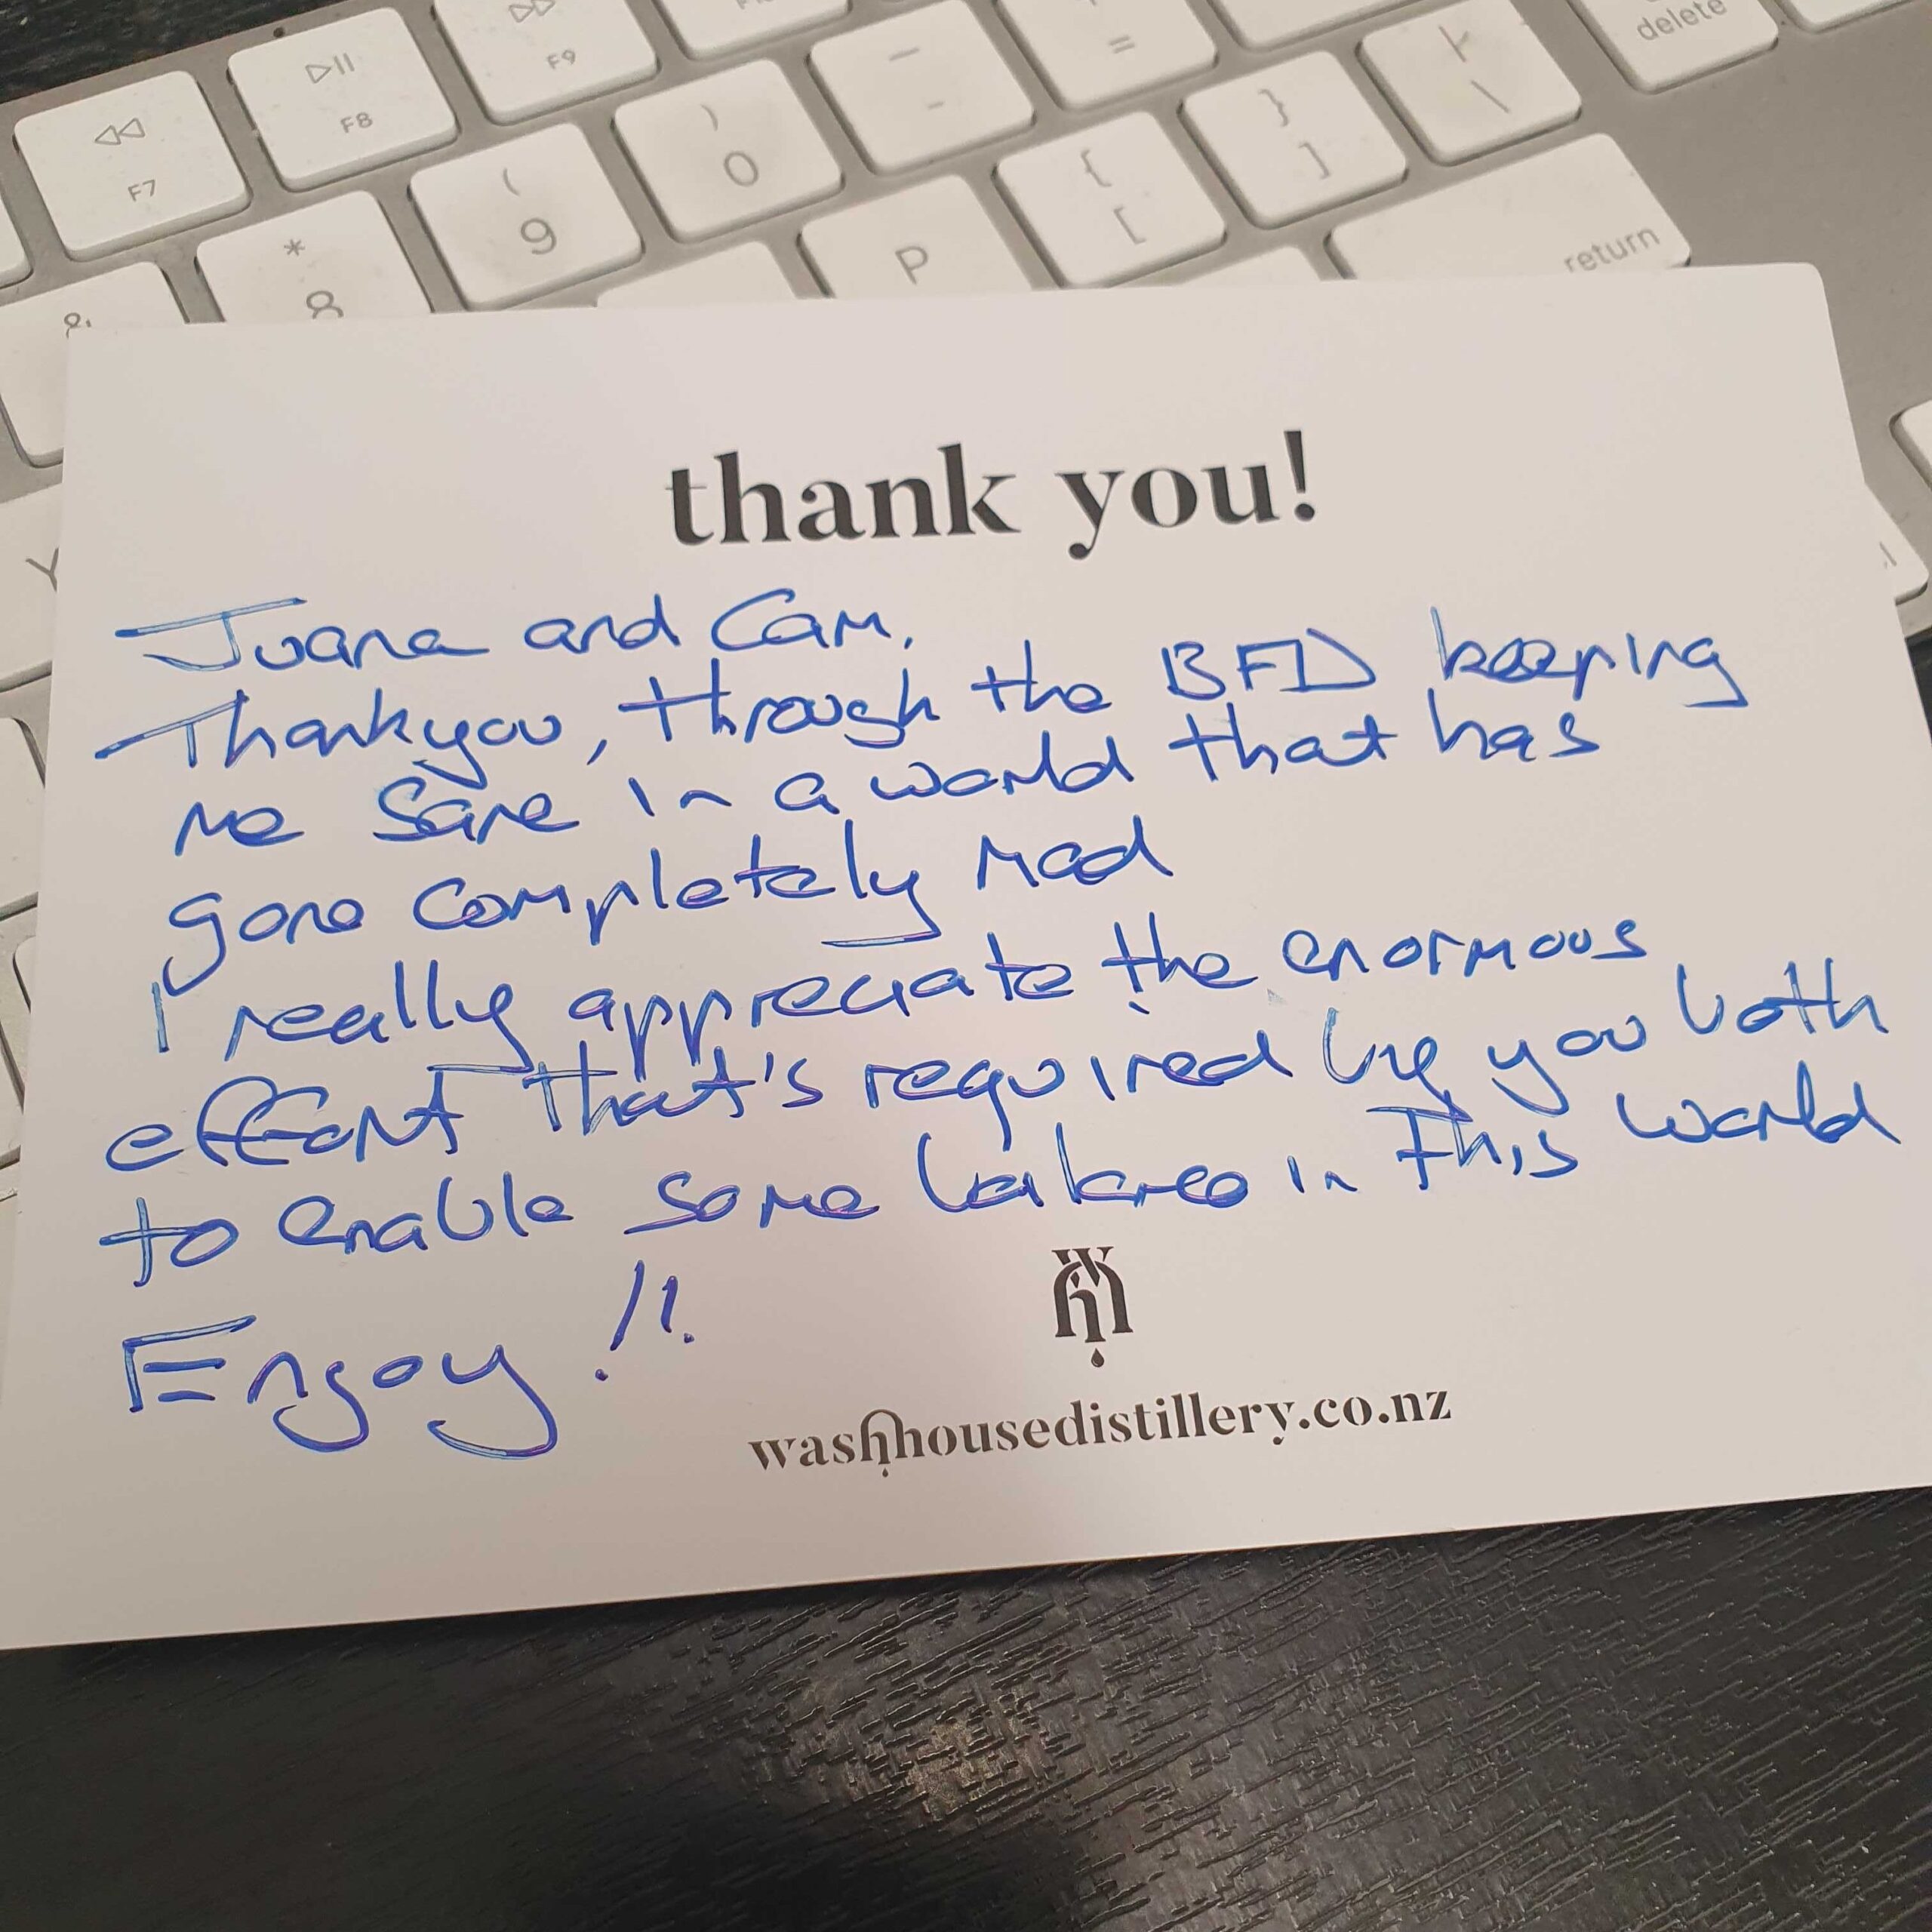 ◁◁
F7
▷II
F8
▷▷
F9
delete
&
*
8
(
9
)
0
—
-
=
P
{
[
}
]
\
return
Y
thank you!
Juana and Cam,
Thankyou, through the BFD keeping
me sane in a world that has
gone completely mad
I really appreciate the enormous
effort that's required by you both
to enable some balance in this world
Enjoy!!
washhousedistillery.co.nz